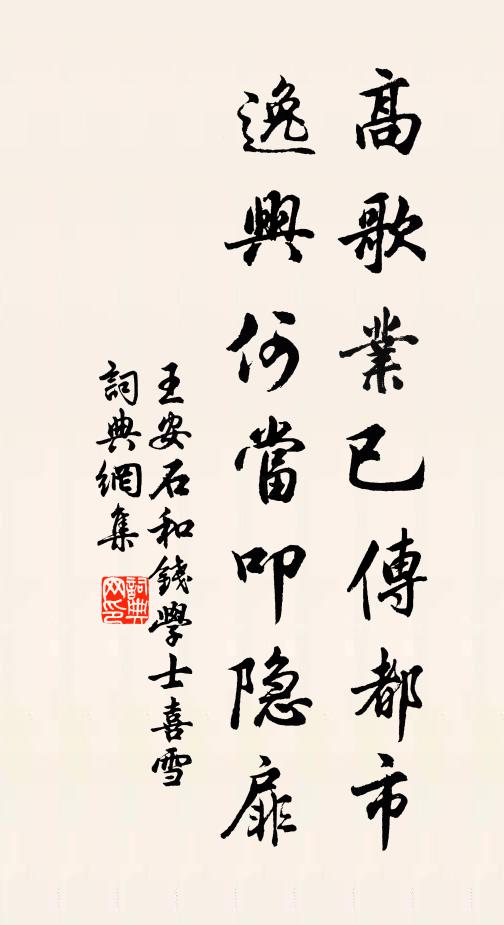 高歌業已傳都市
逸興何當叩隐扉
王安石和錢學士喜雪
詞典網集
詞典网印